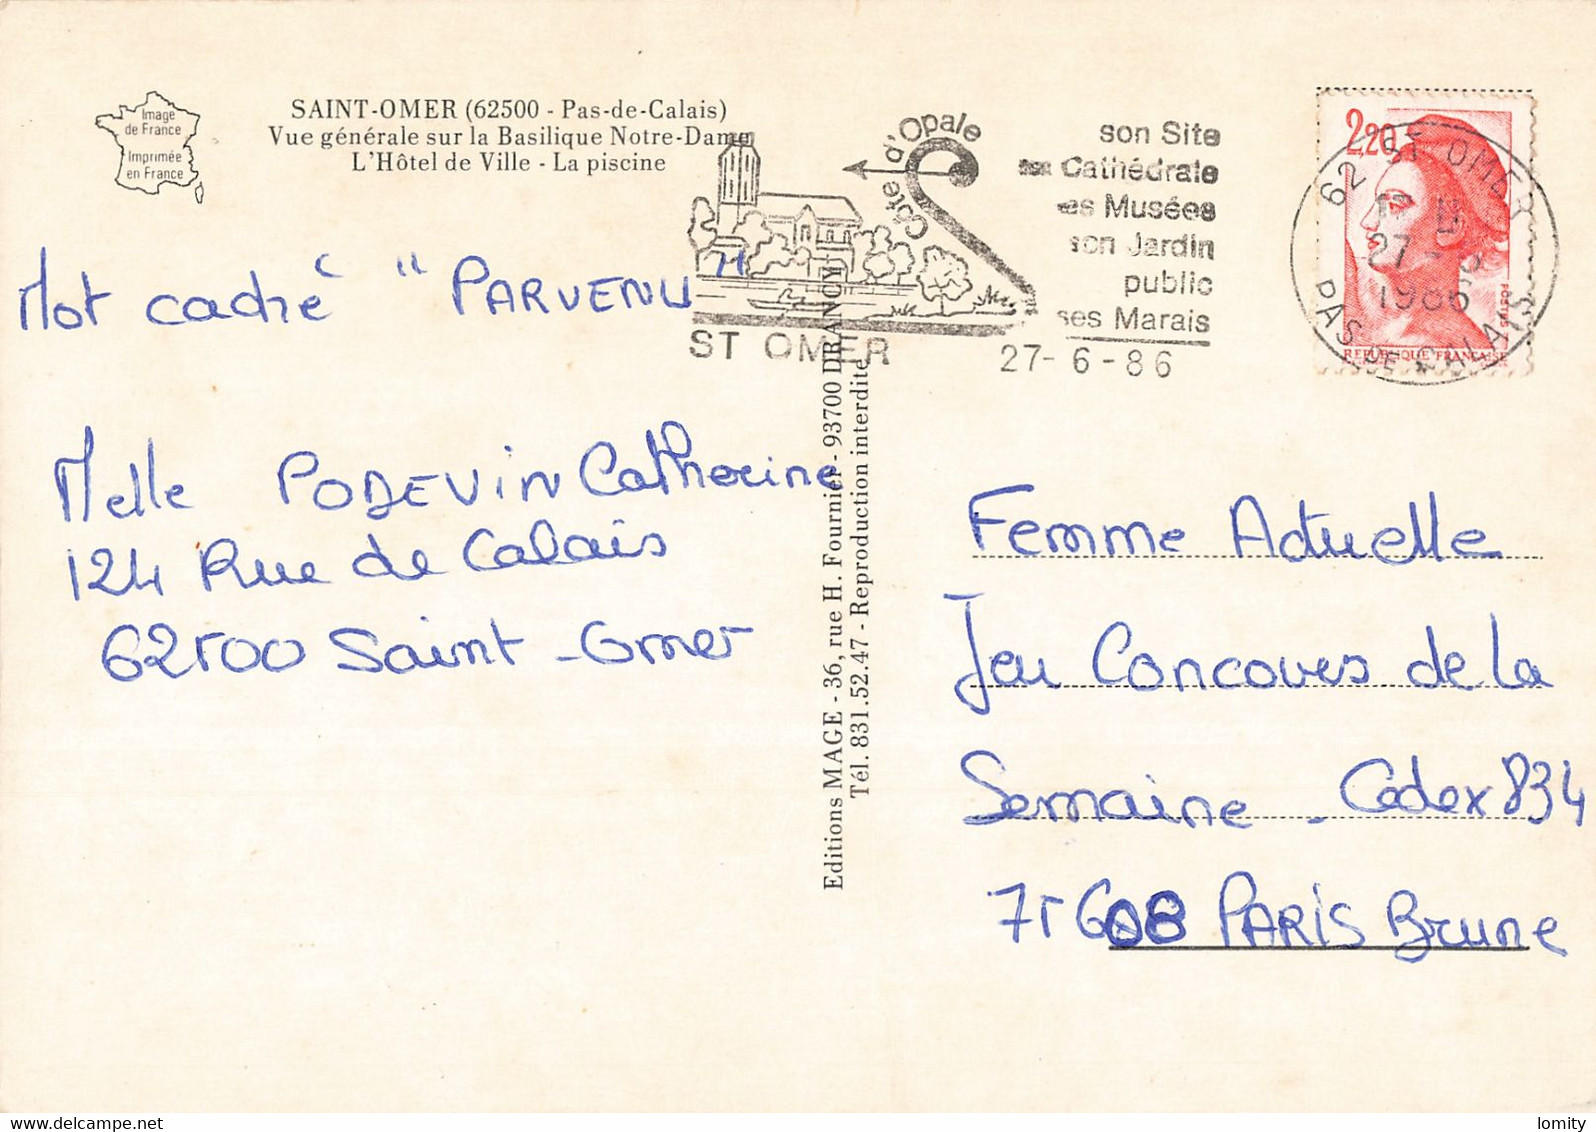 Image
de France
Imprimée
en France
SAINT-OMER (62500 - Pas-de-Calais)
Vue générale sur la Basilique Notre-Dame
L'Hôtel de Ville - La piscine
Côte d'Opale
ST OMER
son Site
Cathédrale
es Musées
son Jardin
public
ses Marais
27-6-86
2,20
POSTES
REPUBLIQUE FRANÇAISE
62 ST OMER
27
1986
PAS DE CALAIS
Mot caché "PARVENU"
Melle PODEVIN Catherine
124 Rue de Calais
62500 Saint-Omer
Editions MAGE - 36, rue H. Fournier - 93700 DRANCY
Tél. 831.52.47 - Reproduction interdite
Femme Actuelle
Jeu Concours de la
Semaine - Cedex 834
75608 PARIS Brune
lomity